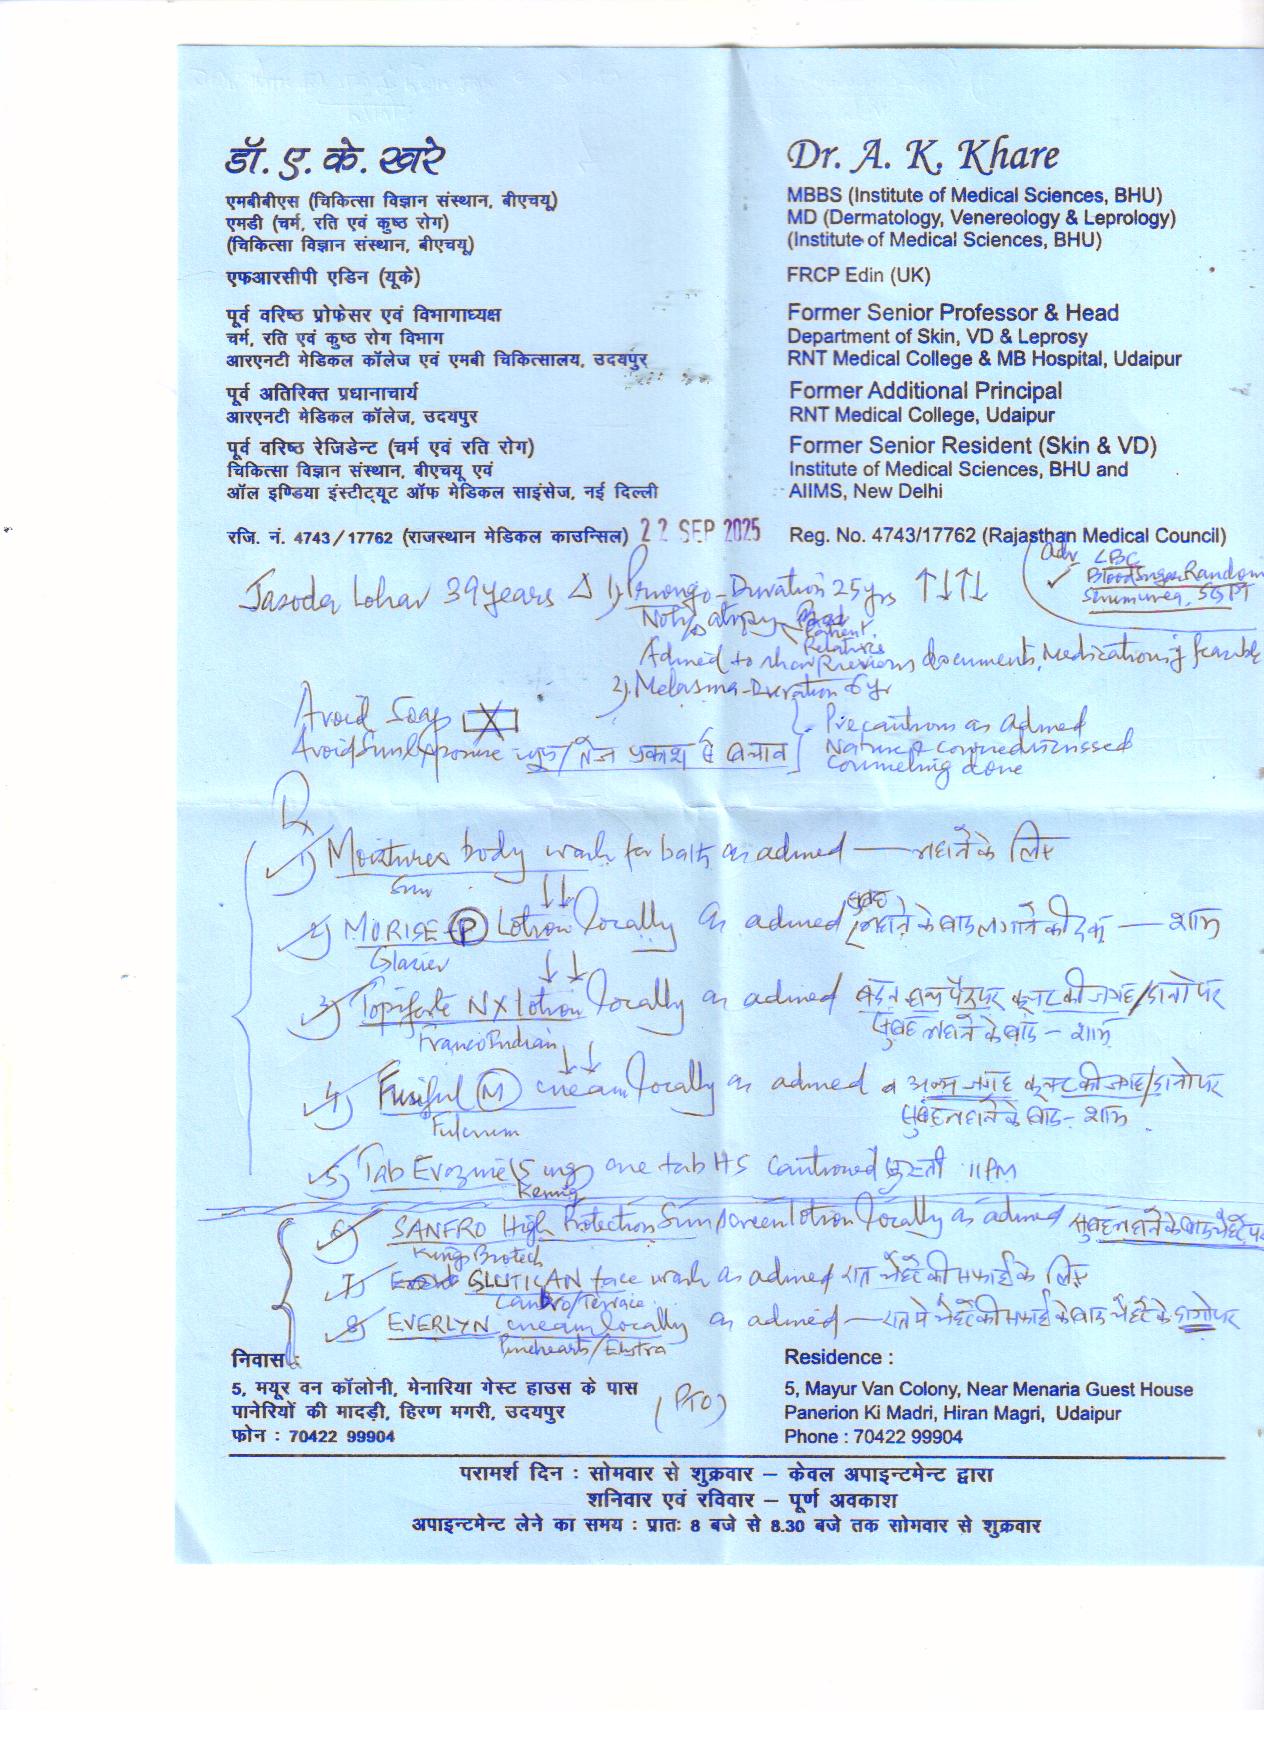 डॉ. ए. के. खरे
एमबीबीएस (चिकित्सा विज्ञान संस्थान, बीएचयू)
एमडी (चर्म, रति एवं कुष्ठ रोग)
(चिकित्सा विज्ञान संस्थान, बीएचयू)
एफआरसीपी एडिन (यूके)
पूर्व वरिष्ठ प्रोफेसर एवं विभागाध्यक्ष
चर्म, रति एवं कुष्ठ रोग विभाग
आरएनटी मेडिकल कॉलेज एवं एमबी चिकित्सालय, उदयपुर
पूर्व अतिरिक्त प्रधानाचार्य
आरएनटी मेडिकल कॉलेज, उदयपुर
पूर्व वरिष्ठ रेजिडेन्ट (चर्म एवं रति रोग)
चिकित्सा विज्ञान संस्थान, बीएचयू एवं
ऑल इण्डिया इंस्टीट्यूट ऑफ मेडिकल साइंसेज, नई दिल्ली
रजि. नं. 4743/17762 (राजस्थान मेडिकल काउन्सिल)
Dr. A. K. Khare
MBBS (Institute of Medical Sciences, BHU)
MD (Dermatology, Venereology & Leprology)
(Institute of Medical Sciences, BHU)
FRCP Edin (UK)
Former Senior Professor & Head
Department of Skin, VD & Leprosy
RNT Medical College & MB Hospital, Udaipur
Former Additional Principal
RNT Medical College, Udaipur
Former Senior Resident (Skin & VD)
Institute of Medical Sciences, BHU and
AIIMS, New Delhi
Reg. No. 4743/17762 (Rajasthan Medical Council)
22 SEP 2025
Adv
Blood Sugar Random
SGPT
Jasoda Lohar 39 years Δ 1) Prurigo - Duration 25 yrs ↑↓↑↓
atopy
Patient
Relatives
Advised to show Previous documents, Medications if feasible
2) Melasma - Duration 6 yr
Avoid Soap
Avoid Sun Exposure धूप/तेज प्रकाश से बचाव
Precautions as advised
Nature & course discussed
Counseling done
Rx
1) Moisturex body wash for bath as advised — नहाने के लिए
Sun
2) MORISE (P) Lotion locally as advised सुबह नहाने के बाद — शाम
Glacier
3) Topiforte NX Lotion locally as advised बदन हाथ पैर पर की जगह/दानो पर
Franco Indian
सुबह नहाने के बाद - शाम
4) Fusiful (M) cream locally as advised व अन्य जगह की जगह/दानो पर
Fulcrum
सुबह नहाने के बाद - शाम
5) Tab 5 mg one tab HS Cautioned सुस्ती 11 PM
6) SANFRO High Protection Sunscreen lotion locally as advised सुबह नहाने के बाद चेहरे पर
Kings Biotech
7) GLUTICAN face wash as advised रात चेहरे की सफाई के लिए
8) EVERLYN cream locally as advised — रात मे चेहरे की सफाई के बाद चेहरे के दागो पर
(PTO)
निवास :
5, मयूर वन कॉलोनी, मेनारिया गेस्ट हाउस के पास
पानेरियों की मादड़ी, हिरण मगरी, उदयपुर
फोन : 70422 99904
Residence :
5, Mayur Van Colony, Near Menaria Guest House
Panerion Ki Madri, Hiran Magri, Udaipur
Phone : 70422 99904
परामर्श दिन : सोमवार से शुक्रवार – केवल अपाइन्टमेन्ट द्वारा
शनिवार एवं रविवार – पूर्ण अवकाश
अपाइन्टमेन्ट लेने का समय : प्रातः 8 बजे से 8.30 बजे तक सोमवार से शुक्रवार